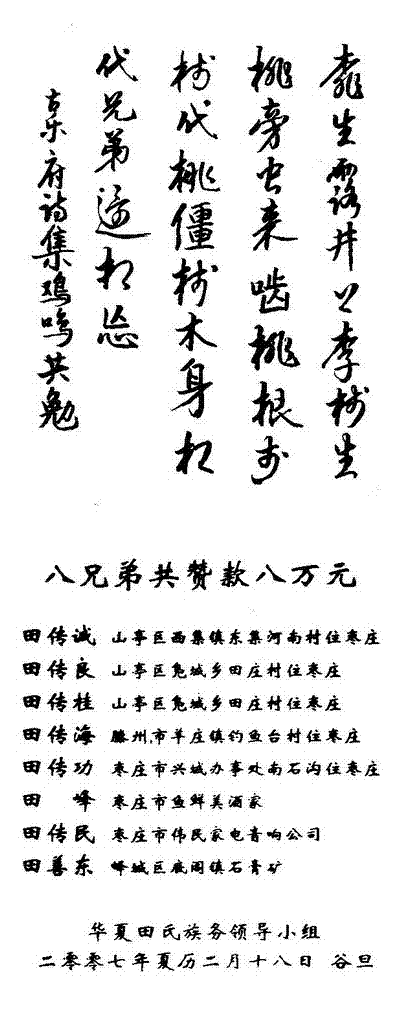 桃生露井上李树生
桃旁虫来啮桃根李
树代桃僵树木身相
代兄弟还相忘
古乐府诗集鸡鸣共勉
八兄弟共赞款八万元
田传诚 山亭区西集镇东集河南村住枣庄
田传良 山亭区凫城乡田庄村住枣庄
田传桂 山亭区凫城乡田庄村住枣庄
田传海 滕州市羊庄镇钓鱼台村住枣庄
田传功 枣庄市兴城办事处南石沟住枣庄
田 峰 枣庄市鱼鲜美酒家
田传民 枣庄市伟民家电音响公司
田善东 峄城区底阁镇石膏矿
华夏田氏族务领导小组
二零零七年夏历二月十八日 谷旦